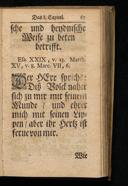 Das 8. Capitel. 67
sche und heydnische
Weise zu beten
betrifft.
Es. XXIX, v. 13. Matth.
XV, v. 8. Marc. VII, 6.
Der HErr spricht:
Diß Volck nahet
sich zu mir mit seinem
Munde / und ehret
mich mit seinen Lip-
pen / aber ihr Hertz ist
ferne von mir.
Wie